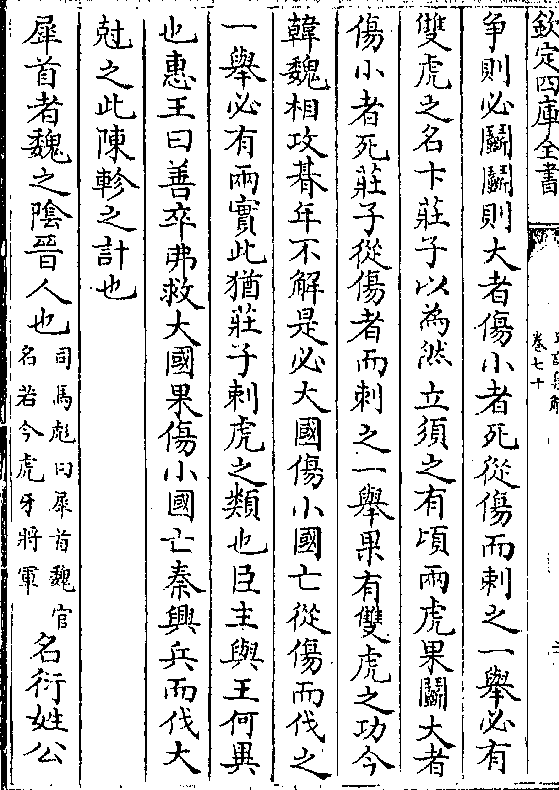 欽定四庫全書
卷七十
争則必鬬鬬則大者傷小者死從傷而刺之一舉必有
雙虎之名卞莊子以為然立須之有頃兩虎果鬬大者
傷小者死莊子從傷者而刺之一舉果有雙虎之功今
韓魏相攻朞年不解是必大國傷小國亡從傷而伐之
一舉必有兩實此猶莊子刺虎之類也臣主與王何異
也惠王曰善卒弗救大國果傷小國亡秦興兵而伐大
尅之此陳軫之計也
犀首者魏之陰晉人也司馬彪曰犀首魏官名若今虎牙將軍名衍姓公